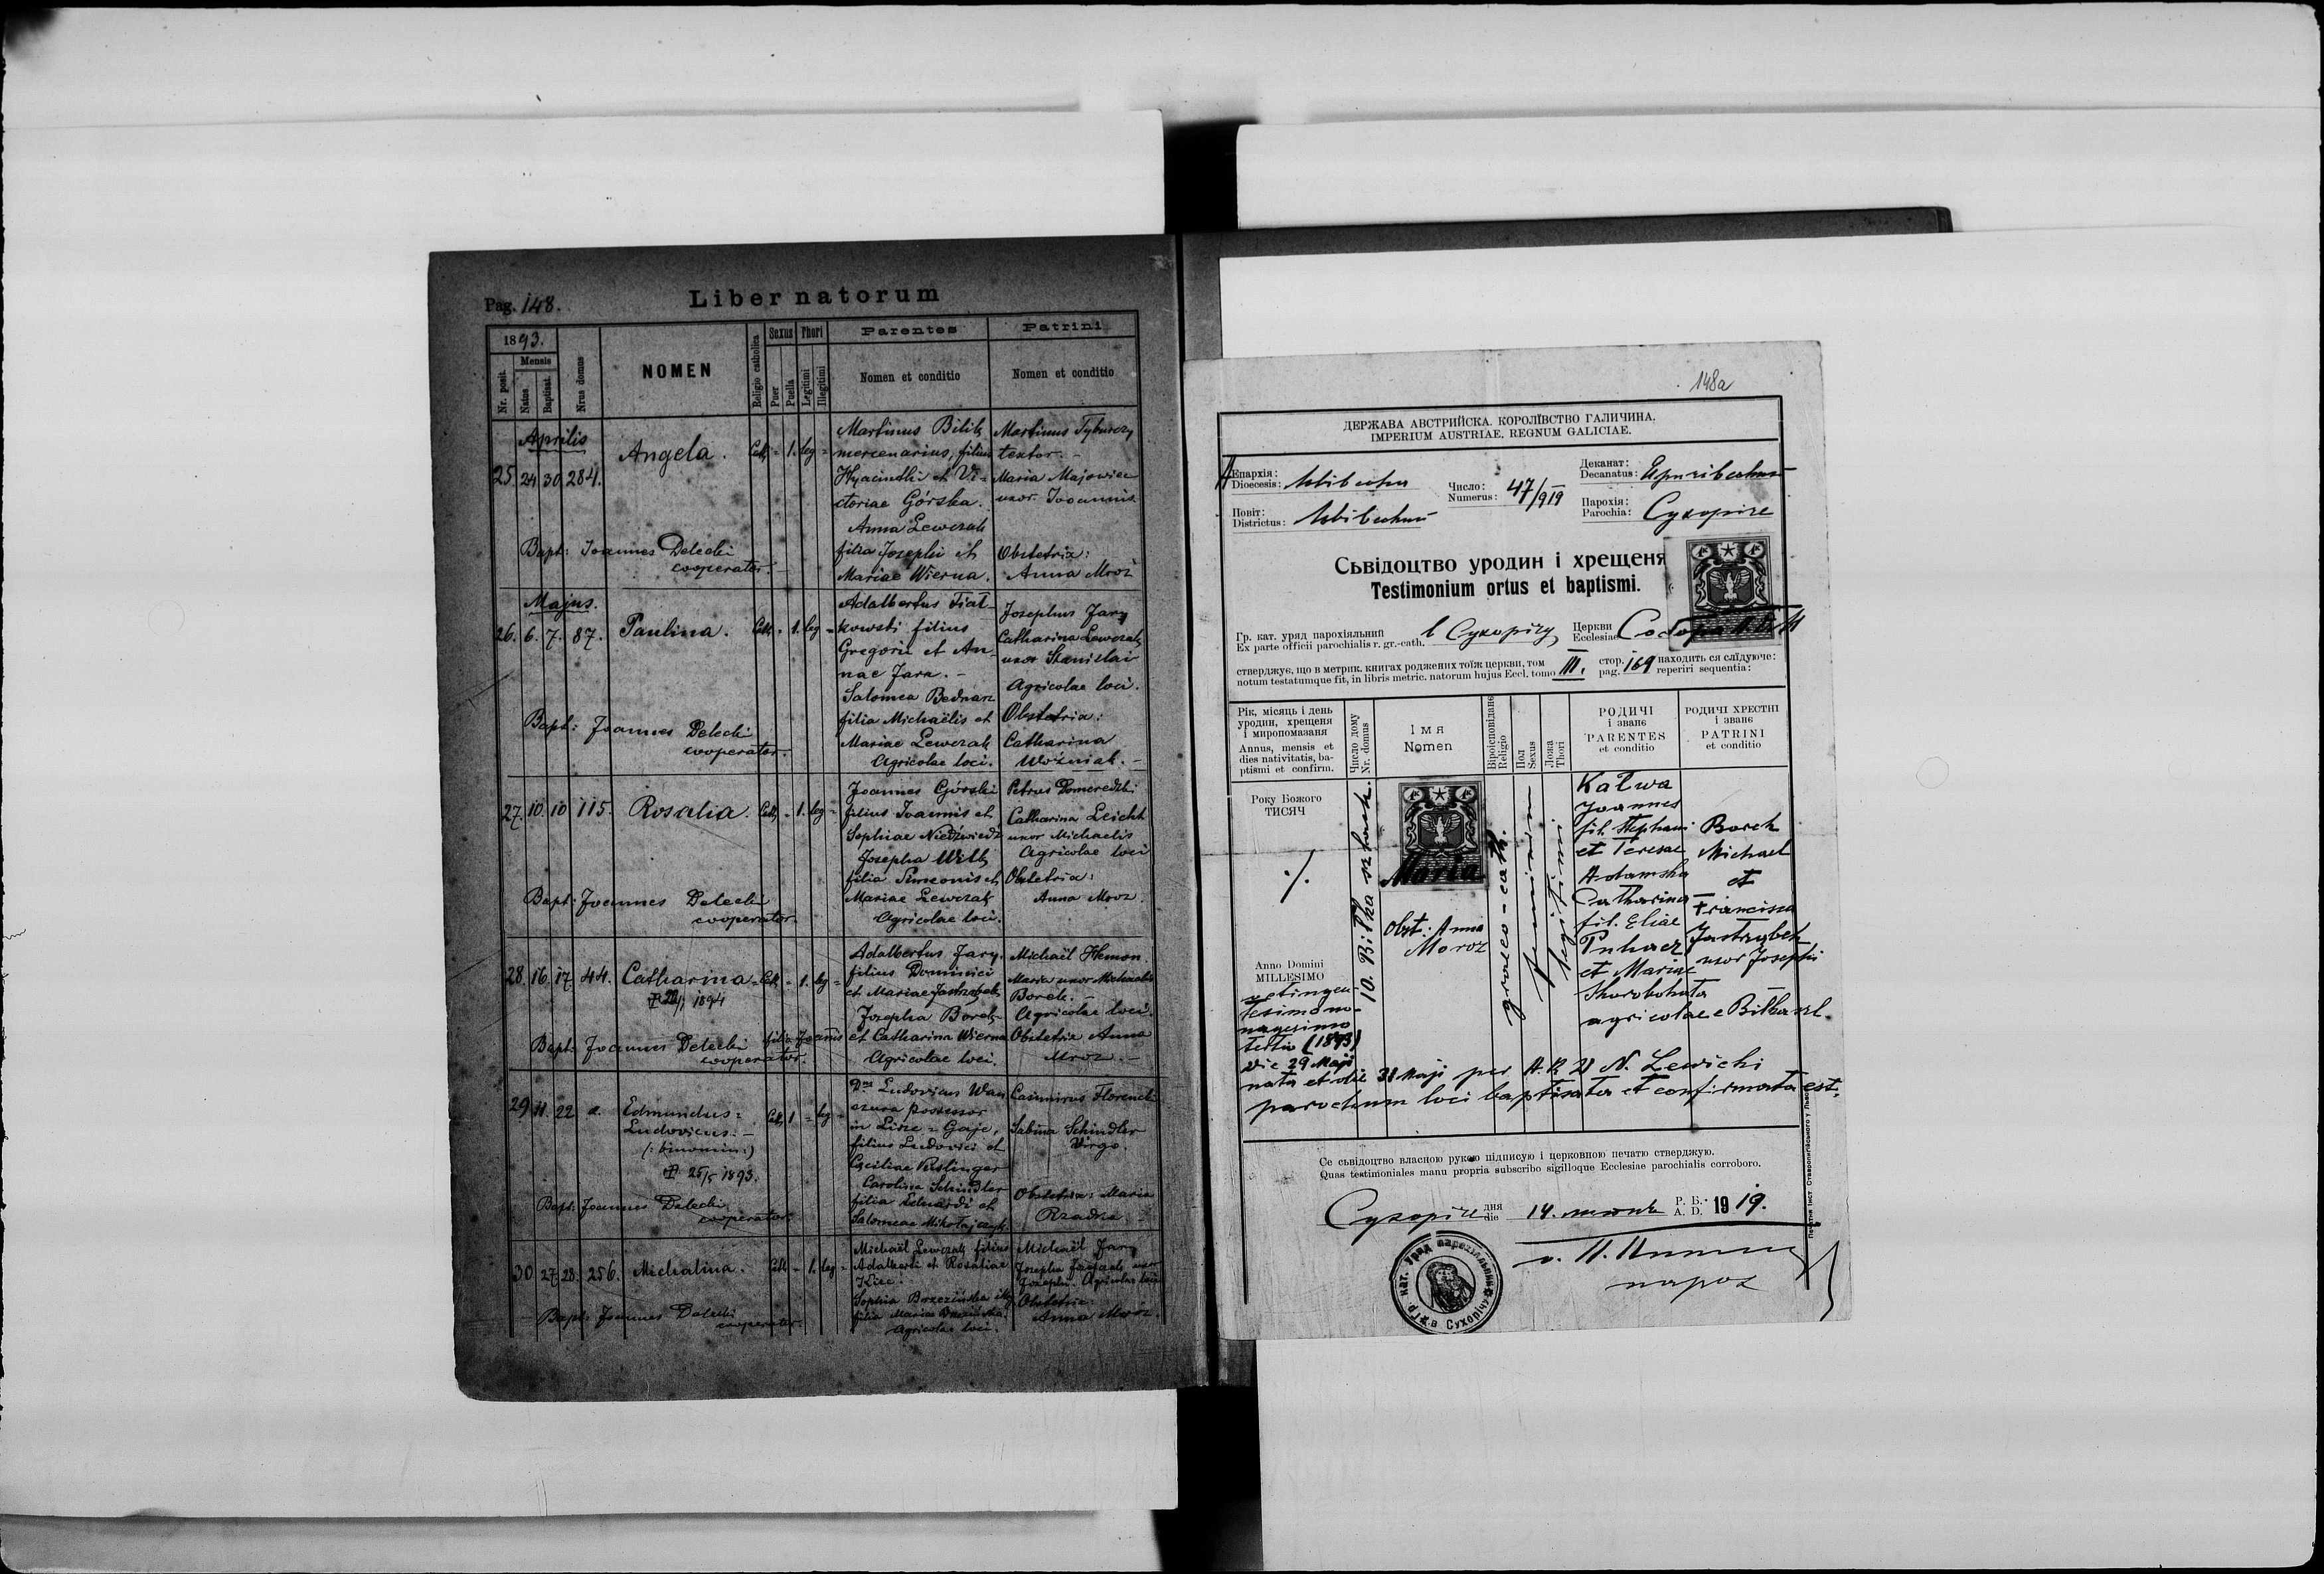 Pag. 148.
Liber natorum
1893.
Nr. posit.
Mensis
Natus
Baptisat.
Nrus domus
NOMEN
Religio catholica
Sexus
Puer
Puella
Thori
Legitimi
Illegitimi
Parentes
Nomen et conditio
Patrini
Nomen et conditio
Aprilis
25 24 30 284.
Angela.
Cath - 1. leg -
Martinus Bilik
mercenarius, filius
Hyacinthi et Vi-
ctoriae Górska.
Anna Lewczak
filia Josephi et
Mariae Wierna.
Martinus Tyburczy
textor. -
Maria Majowicz
uxor Joannis
Obstetrix:
Anna Mroz
Bapt: Joannes Delecki
cooperator. -
Majus.
26. 6. 7. 87.
Paulina.
Cath - 1. leg -
Adalbertus Fiał-
kowski filius
Gregorii et An-
nae Jara. -
Salomea Bednarz
filia Michaëlis et
Mariae Lewczak
Agricolae loci.
Josephus Jary
Catharina Lewczak
uxor Stanislai
Agricolae loci.
Obstetrix:
Catharina
Woźniak. -
Bapt: Joannes Delecki
cooperator. -
27. 10. 10 115.
Rosalia.
Cath - 1. leg -
Joannes Górski
filius Joannis et
Sophiae Niedźwiedź
Josepha Wilk
filia Simeonis et
Mariae Lewczak
Agricolae loci.
Petrus Domeredzki
Catharina Leicht
uxor Michaelis
Agricolae loci
Obstetrix:
Anna Mroz
Bapt: Joannes Delecki
cooperator.
28. 16. 17. 44.
Catharina -
1894
Cath - 1. leg -
Adalbertus Jary.
filius Dominici
et Mariae Jastrzębek
Josepha Borek
filia Joannis et Catharina Wierna
Agricolae loci.
Michaël Hemon.
Maria uxor Michaelis
Borek. -
Agricolae loci.
Obstetrix Anna
Mroz. -
Bapt: Joannes Delecki
cooperator.
29 11. 22 a.
Edmundus =
Ludovicus. -
(: binomin :)
25/5 1893.
Cath 1 - leg -
Dnus Ludovicus Wan
czura possessor
in Lisie = Gaje,
filius Ludovici et
Caeciliae
Carolina Schindler
filia Eduardi et
Salomeae Mikołajczyk
Casimirus
Sabina Schindler
Virgo.
Obstetrix: Maria
Rzadka
Bapt: Joannes Delecki
cooperator.
30 27. 28. 256.
Michalina.
Cath - 1. leg -
Michaël Lewczak filius
Adalberti et Rosaliae
Kiec.
Sophia Brzezińska
filia Mariae Brzezińska.
Agricolae loci.
Michaël Jary
Josepha uxor
Josephi. Agricolae loci
Obstetrix:
Anna Mroz.
Bapt: Joannes Delecki
cooperator.
148a
ДЕРЖАВА АВСТРИЙСКА. КОРОЛЇВСТВО ГАЛИЧИНА.
IMPERIUM AUSTRIAE, REGNUM GALICIAE.
Епархія:
Dioecesis: Львівска
Число:
Numerus: 47/919
Деканат:
Decanatus:
Повіт:
Districtus: Львівский
Парохія:
Parochia: Сухоріче
Сьвідоцтво уродин і хрещеня
Testimonium ortus et baptismi.
Гр. кат. уряд парохіяльний
Ex parte officii parochialis r. gr.-cath. в Сухорічу
Церкви
Ecclesiae Собора
стверджує, що в метрик. книгах роджених тоїж церкви, том III. стор. 169 находить ся слїдуюче:
notum testatumque fit, in libris metric. natorum hujus Eccl. tomo pag. reperiri sequentia:
Рік, місяць і день
уродин, хрещеня
і миропомазаня
Annus, mensis et
dies nativitatis, ba-
ptismi et confirm.
Число дому
Nr. domus
ІМЯ
Nomen
Віроісповіданє
Religio
Пол
Sexus
Ложа
Thori
РОДИЧІ
і званє
PARENTES
et conditio
РОДИЧІ ХРЕСТНІ
і званє
PATRINI
et conditio
Року Божого
ТИСЯЧ
./.
Anno Domini
MILLESIMO
octingen-
tesimo no-
nagesimo
tertio (1893)
die 29 Maji
nata et die 31 Maji per A. R. D N. Lewicki
parochum loci baptisata et confirmata est.
10. Biłka szlach.
Maria
Obst: Anna
Moroz
graeco-cath.
femininum
legitimi
Kałwa
Joannes
fil. Stephani
et Teresae
Adamska
Catharina
fil. Eliae
Puhacz
et Mariae
Skorobohata
agricolae e Biłka szl.
Borek
Michael
et
Francisca
Jastrzębek
uxor Josephi
Се сьвідоцтво власною рукою підписую і церковною печатю стверджую.
Quas testimoniales manu propria subscribo sigilloque Ecclesiae parochialis corroboro.
Сухоріче дня
die 14. Р. Б.
A. D. 1919.
парох
гр. кат. Уряд парохіяльний
в Сухорічу
Печатня Інст. Ставропигійського у Львові